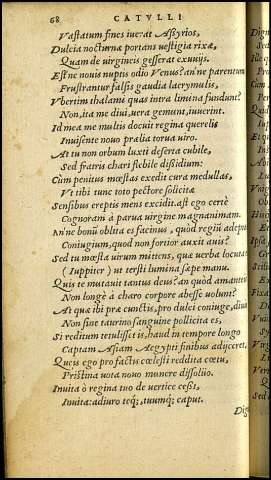 68 CATVLLI
Vastatum fines iuerat Aßyrios,
Dulcia nocturnæ portans uestigia rixæ,
Quam de uirgineis gesserat exuuijs.
Est ne nouis nuptis odio Venus? an'ne parentum
Frustrantur falsis gaudia lacrymulis,
Vbertim thalami quas intra limina fundunt?
Non, ita me diui, uera gemunt, iuuerint.
Id mea me multis docuit regina querelis
Inuisente nouo prælia torua uiro.
At tu non orbum luxti deserta cubile,
Sed fratris chari flebile dissidium:
Cum penitus mœstas exedit cura medullas,
Vt tibi tunc toto pectore sollicita
Sensibus ereptis mens excidit. ast ego certè
Cognoram à parua uirgine magnanimam.
An'ne bonũ oblita es facinus, quòd regiũ adepta
Coniugium, quod non fortior auxit auis?
Sed tu mœsta uirum mittens, quæ uerba locuta
(Iuppiter) ut tersti lumina sæpe manu.
Quis te mutauit tantus deus? an quòd amantes
Non longè à charo corpore abesse uolunt?
At quæ ibi præ cunctis, pro dulci coniuge, diuis
Non sine taurino sanguine pollicita es,
Si reditum tetulisset is, haud in tempore longo
Captam Asiam Aegypti finibus adijceret.
Queis ego pro factis cœlesti reddita cœtu,
Pristina uota nouo munere dissoluo.
Inuita ò regina tuo de uertice cessi,
Inuita: adiuro teq;, tuumq; caput.
Dig